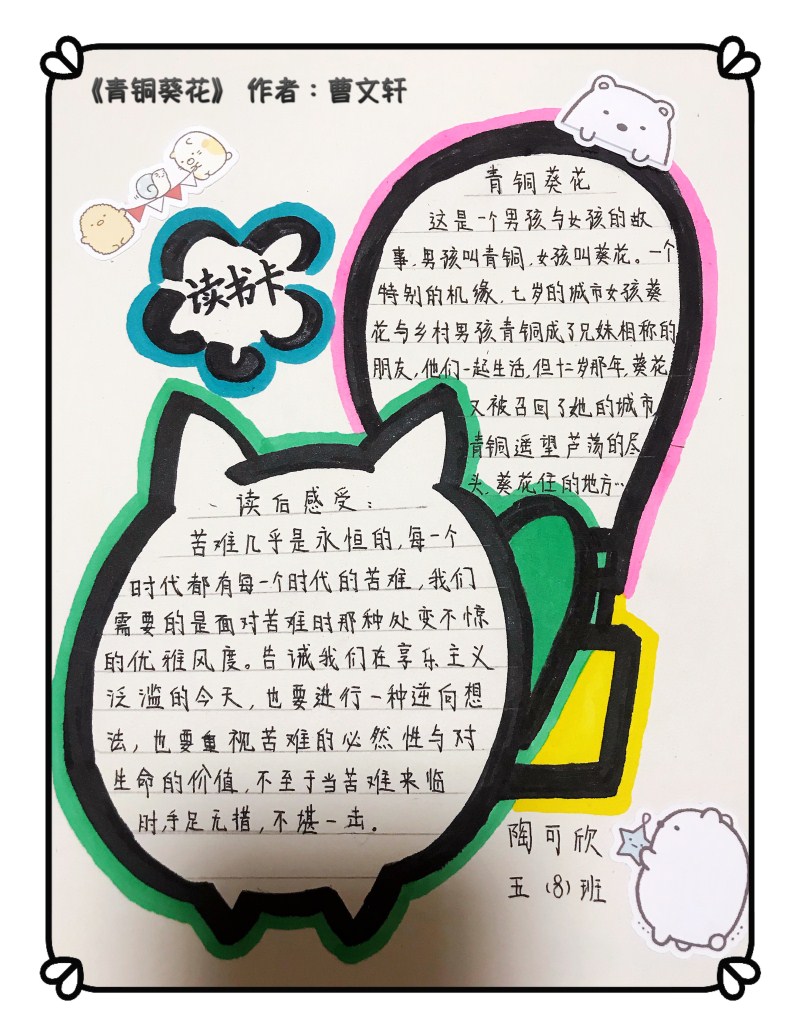 《青铜葵花》 作者：曹文轩
读书卡
青铜葵花
这是一个男孩与女孩的故
事，男孩叫青铜，女孩叫葵花。一个
特别的机缘，七岁的城市女孩葵
花与乡村男孩青铜成了兄妹相称的
朋友，他们一起生活，但十二岁那年，葵花
又被召回了她的城市，
青铜遥望芦荡的尽
头，葵花住的地方…
读后感受：
苦难几乎是永恒的，每一个
时代都有每一个时代的苦难，我们
需要的是面对苦难时那种处变不惊
的优雅风度。告诫我们在享乐主义
泛滥的今天，也要进行一种逆向想
法，也要重视苦难的必然性与对
生命的价值，不至于当苦难来临
时，手足无措，不堪一击。
陶可欣
五（8）班